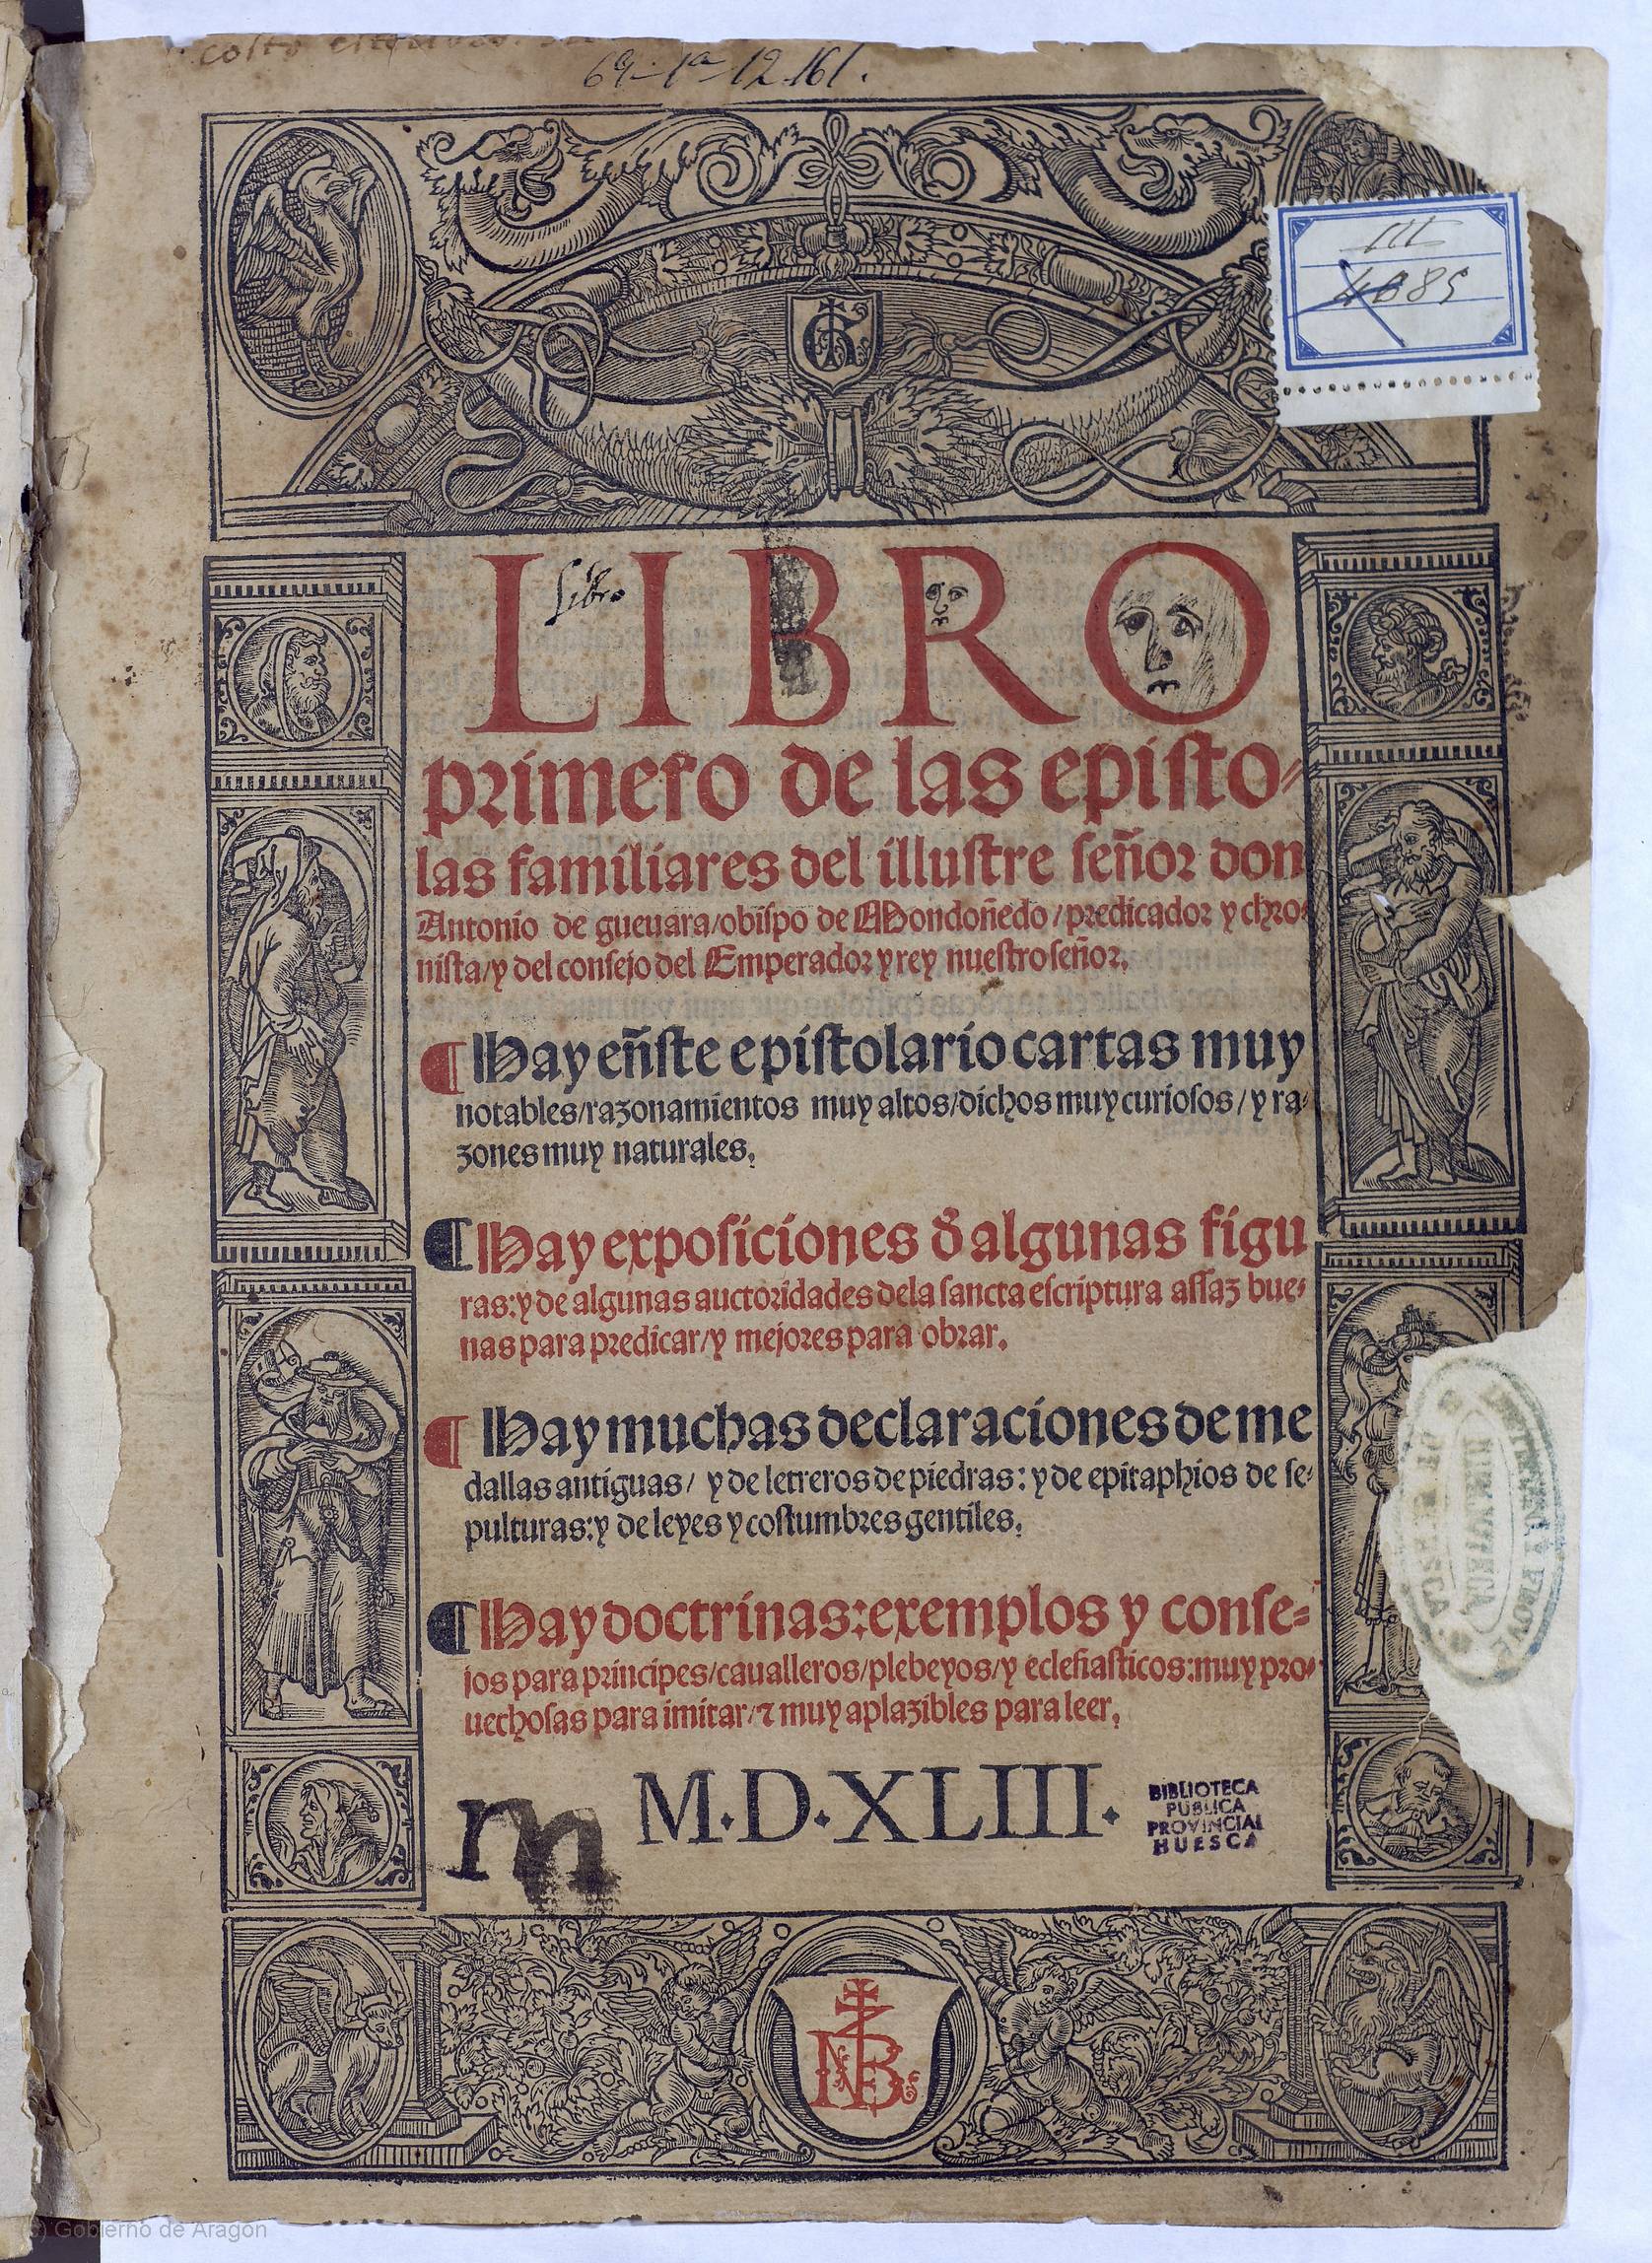 69-1ª-12.161.
III
4085
LIBRO
Libro
primero de las episto-
las familiares del illustre señor don
Antonio de gueuara/obispo de Mondoñedo/predicador y chro-
nista/y del consejo del Emperador y rey nuestro señor.
¶ Hay eñste epistolario cartas muy
notables/razonamientos muy altos/dichos muy curiosos/y ra-
zones muy naturales.
¶ Hay exposiciones d̃ algunas figu
ras:y de algunas auctoridades dela sancta escriptura assaz bue-
nas para predicar/y mejores para obrar.
¶ Hay muchas declaraciones de me
dallas antiguas/ y de letreros de piedras: y de epitaphios de se-
pulturas:y de leyes y costumbres gentiles.
¶ Hay doctrinas:exemplos y conse-
jos para principes/caualleros/plebeyos/y eclesiasticos:muy pro-
uechosas para imitar/⁊ muy aplazibles para leer.
m
M.D.XLIII.
BIBLIOTECA
PÚBLICA
PROVINCIAL
HUESCA
(c) Gobierno de Aragon